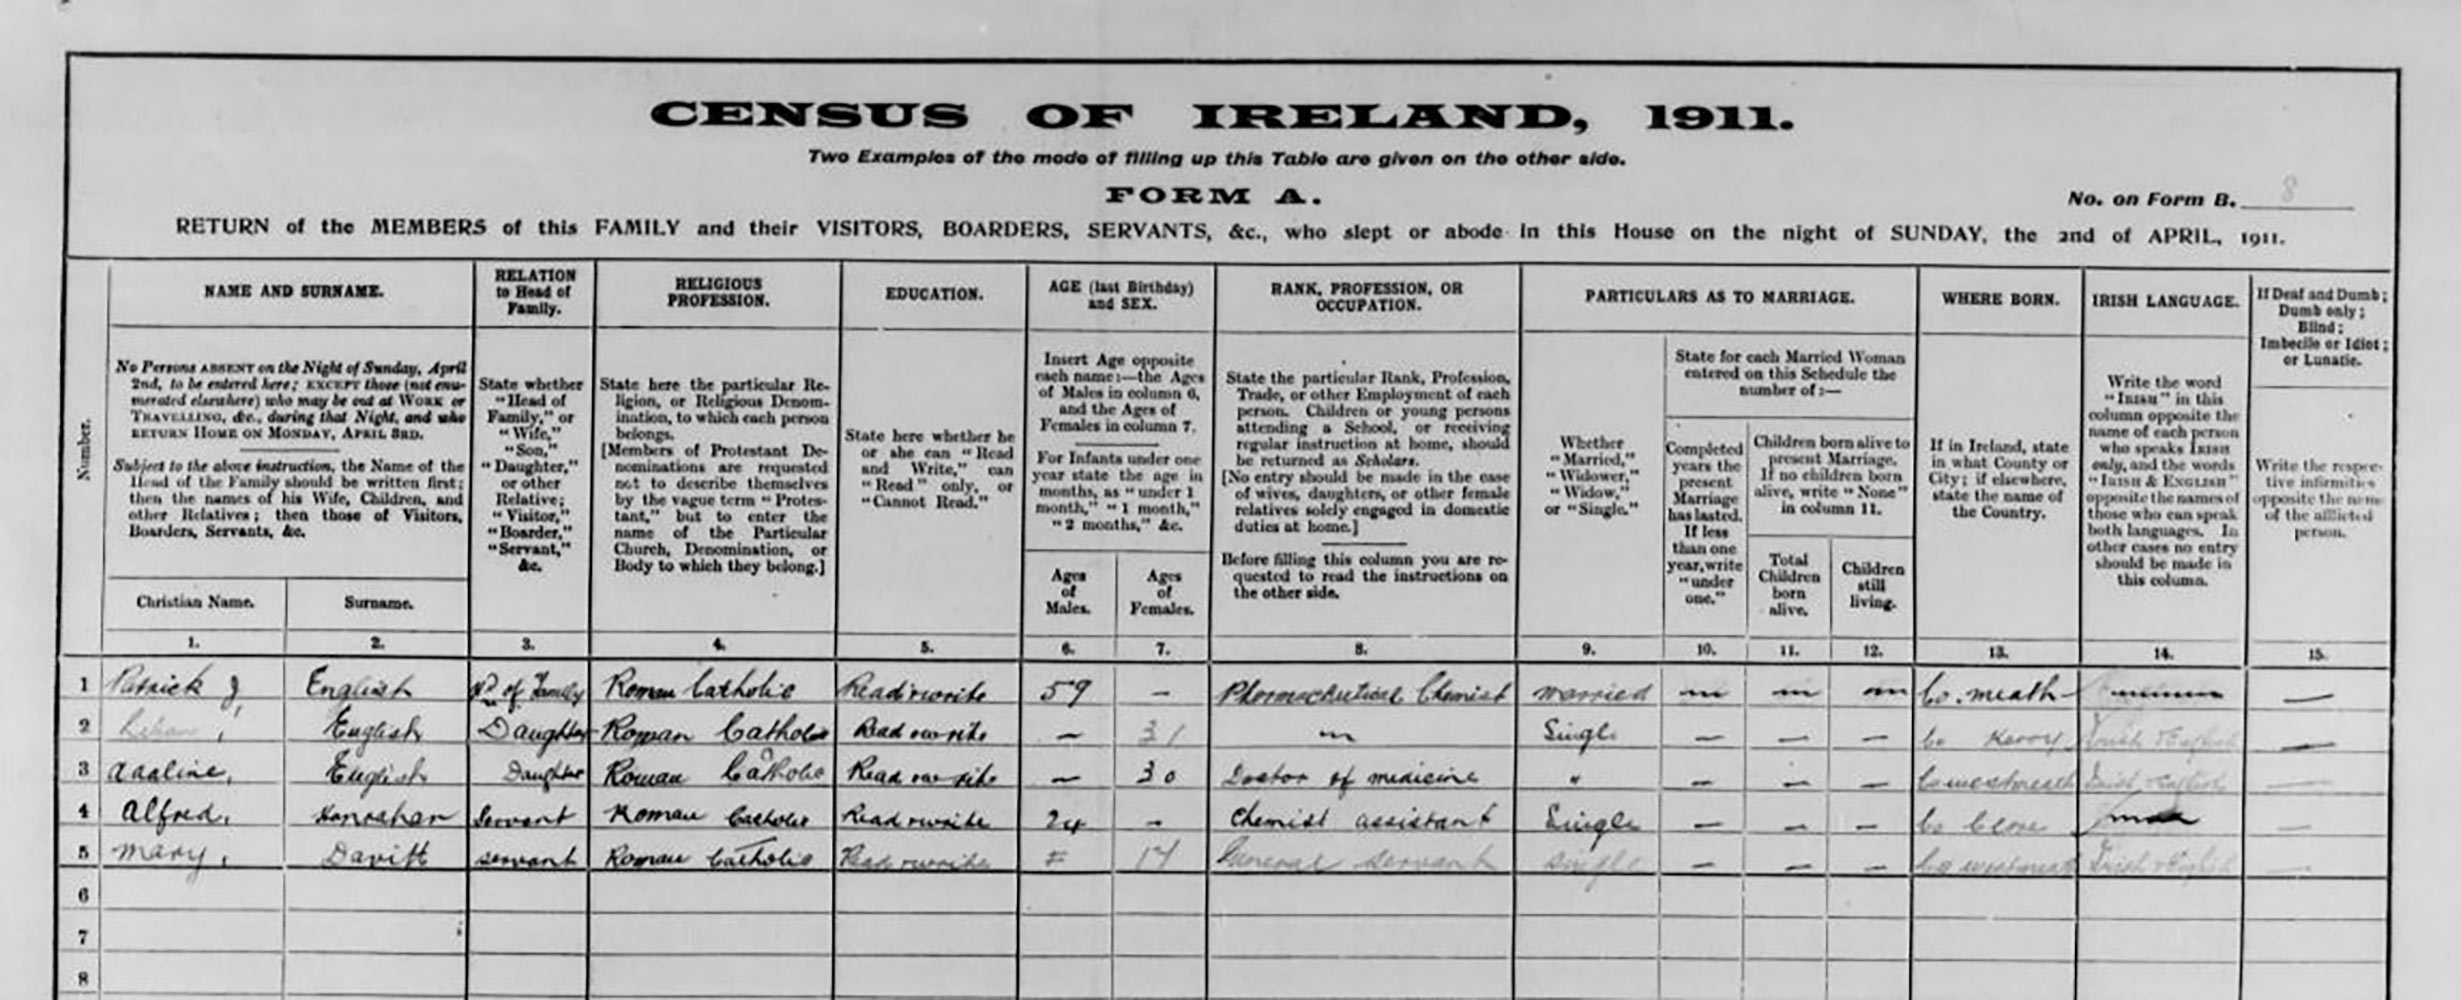 CENSUS OF IRELAND, 1911.
Two Examples of the mode of filling up this Table are given on the other side.
FORM A.
No. on Form B. 8
RETURN of the MEMBERS of this FAMILY and their VISITORS, BOARDERS, SERVANTS, &c., who slept or abode in this House on the night of SUNDAY, the 2nd of APRIL, 1911.
Number.
NAME AND SURNAME.
No Persons ABSENT on the Night of Sunday, April
2nd, to be entered here; EXCEPT those (not enu-
merated elsewhere) who may be out at WORK or
TRAVELLING, &c., during that Night, and who
RETURN HOME ON MONDAY, APRIL 3RD.
Subject to the above instruction, the Name of the
Head of the Family should be written first;
then the names of his Wife, Children, and
other Relatives; then those of Visitors,
Boarders, Servants, &c.
Christian Name.
Surname.
1.
2.
RELATION
to Head of
Family.
State whether
"Head of
Family," or
"Wife,"
"Son,"
"Daughter,"
or other
Relative;
"Visitor,"
"Boarder,"
"Servant,"
&c.
3.
RELIGIOUS
PROFESSION.
State here the particular Re-
ligion, or Religious Denom-
ination, to which each person
belongs.
[Members of Protestant De-
nominations are requested
not to describe themselves
by the vague term "Protes-
tant," but to enter the
name of the Particular
Church, Denomination, or
Body to which they belong.]
4.
EDUCATION.
State here whether he
or she can "Read
and Write," can
"Read" only, or
"Cannot Read."
5.
AGE (last Birthday)
and SEX.
Insert Age opposite
each name:—the Ages
of Males in column 6,
and the Ages of
Females in column 7.
For Infants under one
year state the age in
months, as "under 1
month," "1 month,"
"2 months," &c.
Ages
of
Males.
Ages
of
Females.
6.
7.
RANK, PROFESSION, OR
OCCUPATION.
State the particular Rank, Profession,
Trade, or other Employment of each
person. Children or young persons
attending a School, or receiving
regular instruction at home, should
be returned as Scholars.
[No entry should be made in the case
of wives, daughters, or other female
relatives solely engaged in domestic
duties at home.]
Before filling this column you are re-
quested to read the instructions on
the other side.
8.
PARTICULARS AS TO MARRIAGE.
Whether
"Married,"
"Widower,"
"Widow,"
or "Single."
9.
State for each Married Woman
entered on this Schedule the
number of:—
Completed
years the
present
Marriage
has lasted.
If less
than one
year, write
"under
one."
10.
Children born alive to
present Marriage.
If no children born
alive, write "None"
in column 11.
Total
Children
born
alive.
11.
Children
still
living.
12.
WHERE BORN.
If in Ireland, state
in what County or
City; if elsewhere,
state the name of
the Country.
13.
IRISH LANGUAGE.
Write the word
"IRISH" in this
column opposite the
name of each person
who speaks IRISH
only, and the words
"IRISH & ENGLISH"
opposite the names of
those who can speak
both languages. In
other cases no entry
should be made in
this column.
14.
If Deaf and Dumb;
Dumb only;
Blind;
Imbecile or Idiot;
or Lunatic.
Write the respec-
tive infirmities
opposite the name
of the afflicted
person.
15.
1 Patrick J, English Hd of Family Roman Catholic Read & write 59 – Pharmaceutical Chemist married — — — Co. Meath —
2 English Daughter Roman Catholic Read & write – 31 — Single – – – Co Kerry Irish & English —
3 Adaline, English Daughter Roman Catholic Read & write – 30 Doctor of medicine " – – – Co westmeath Irish & English —
4 Alfred, Servant Roman Catholic Read & write 24 – Chemist assistant Single – – – Co Clare —
5 Mary, Davitt servant Roman Catholic Read & write 17 General Servant Single – – – Co westmeath Irish & English —
6
7
8